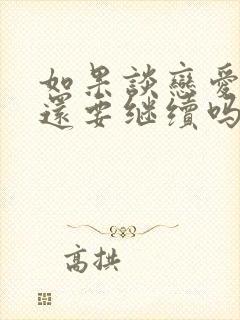 如果談戀愛
還要继續吗
高拱